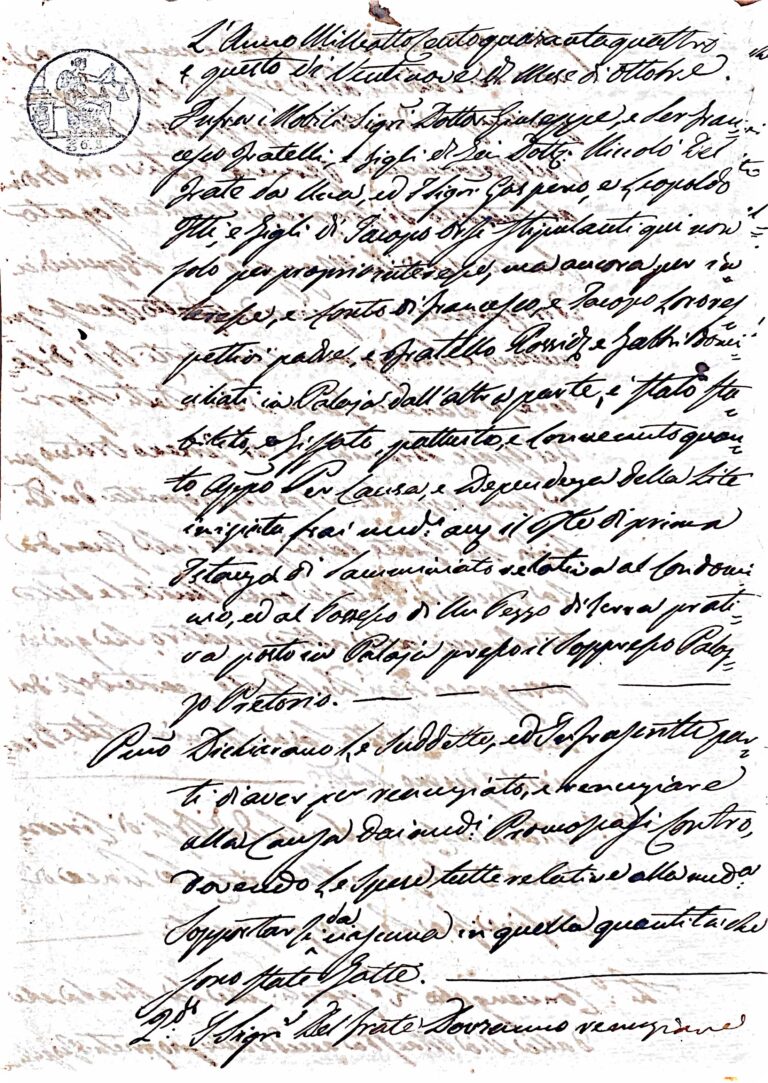 L'Anno Milleottocentoquarantaquattro
e questo dì Ventinove del Mese di Ottobre.
Infra i Nobili Sigri Dottor Giuseppe, e Ser Fran=
cesco Fratelli, e figli di Dottr. Niccolò Del
Frate da una, ed I Sigri Gaspero, e Leopoldo
Flli, e Figli di Jacopo stipulanti qui non
solo per proprio interesse, ma ancora per in=
teresse, e Conto di Francesco, e Jacopo Loro res=
pettivi padre, e fratello Possidi e Fattri domi=
ciliati in Palaja dall'altra parte, è stato sta=
bilito, e fissato, pattuito, e Convenuto quan=
to appo Per Causa, e Dependenza della Lite
insorta frai medi. il di prima
Istanza di Samminiato relativa al Condomi=
nio, ed al Possesso di Un Pezzo di terra prati=
va posto in Palaja presso il Soppresso Palaz=
zo Pretorio.
Pmo Dichiarano Le Suddette, ed Infrascritte par=
ti d'aver per renunziato, e renunziare
alla Causa dai medi. Promossasi Contro,
dovendo Le Spese tutte relative alla meda.
Sopportarsi da ciascuna in quella quantità che
sono state Fatte.
2.do I Sigri Del Frate Dovranno renunziare